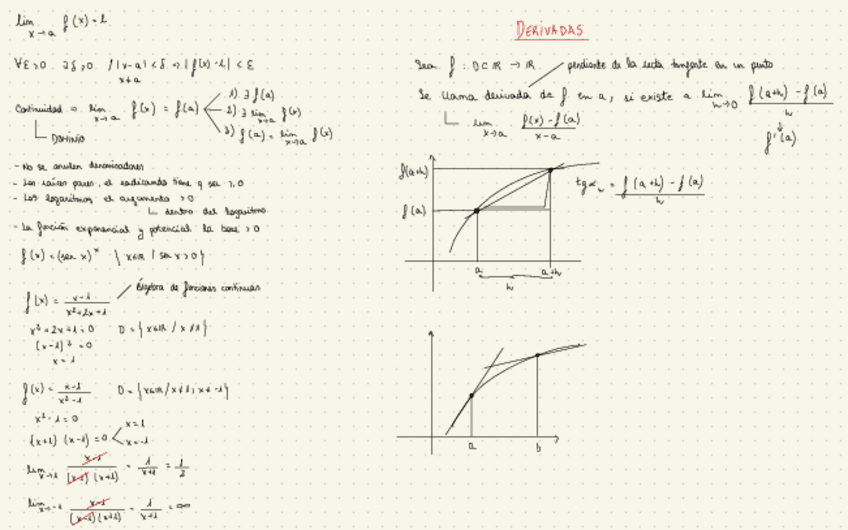 lim f(x) = l
x→a
∀ε>0 ∃δ>0 / |x-a| < δ ⇒ |f(x)-l| < ε
x≠a
Continuidad ⇒ lim f(x) = f(a)
x→a
1) ∃ f(a)
2) ∃ lim f(x)
x→a
3) f(a) = lim f(x)
x→a
DOMINIO
- No se anulen denominadores
- Las raíces pares, el radicando tiene q ser ≥ 0
- Los logaritmos el argumento > 0
dentro del logaritmo
- La función exponencial y potencial la base > 0
f(x) = (sen x)^x { x∈ℝ / sen x > 0 }
Álgebra de funciones continuas
f(x) = x-1 / x²+2x+1
x²+2x+1=0 D = { x∈ℝ / x≠1 }
(x-1)²=0
x=1
f(x) = x-1 / x²-1 D = { x∈ℝ / x≠1; x≠-1 }
x²-1=0
(x+1) (x-1) = 0
x=1
x=-1
lim x→1 x-1 / (x-1) (x+1) = 1 / x+1 = 1 / 2
lim x→-1 x-1 / (x-1) (x+1) = 1 / x+1 = ∞
DERIVADAS
Sea f : D⊂ℝ → ℝ
pendiente de la recta tangente en un punto
Se llama derivada de f en a, si existe a lim h→0 f(a+h) - f(a) / h
lim x→a f(x) - f(a) / x-a
f'(a)
f(a+h)
f(a)
a
a+h
h
tg α_h = f(a+h) - f(a) / h
a
b